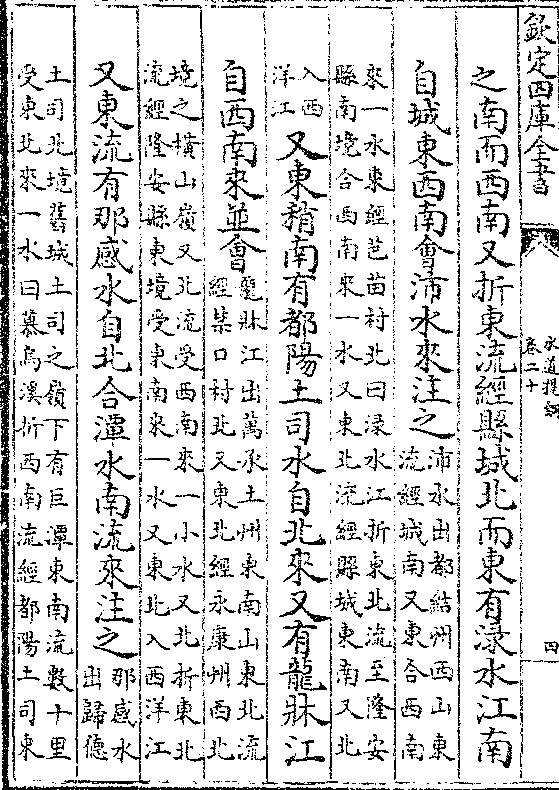 欽定四庫全書
水道提綱
卷二十
四
之南而西南又折東流經縣城北而東有淥水江南
自城東西南會沛水來注之
沛水出都結州西山東
流經城南又東合西南
來一水東經芭苗村北曰淥水江折東北流至隆安
縣南境合西南來一水又東北流經縣城東南又北
入西
洋江
又東稍南有都陽土司水自北來又有龍牀江
自西南來並會
龍牀江出萬承土州東南山東北流
經禁口村北又東北經永康州西北
境之橫山嶺又北流受西南來一小水又北折東北
流經隆安縣東境受東南來一水又東北入西洋江
又東流有那感水自北合潭水南流來注之
那感水
出歸德
土司北境舊城土司之嶺下有巨潭東南流數十里
受東北來一水曰慕烏溪折西南流經都陽土司東